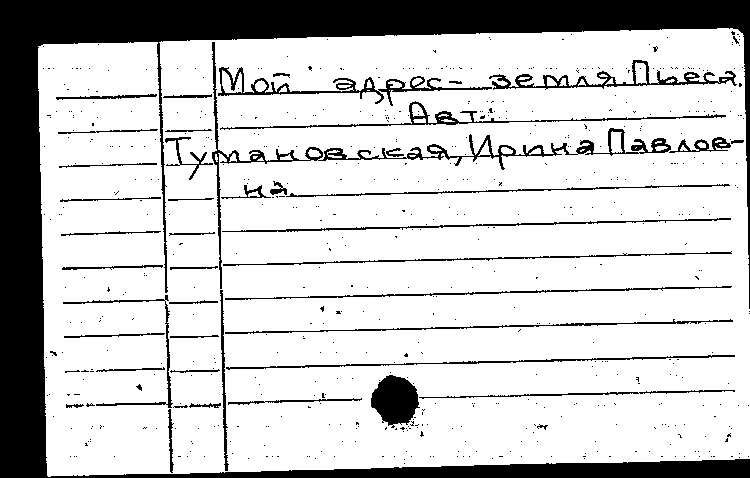 Мой адрес- земля. Пьеса.
Авт.:
Тумановская, Ирина Павлов-
на.